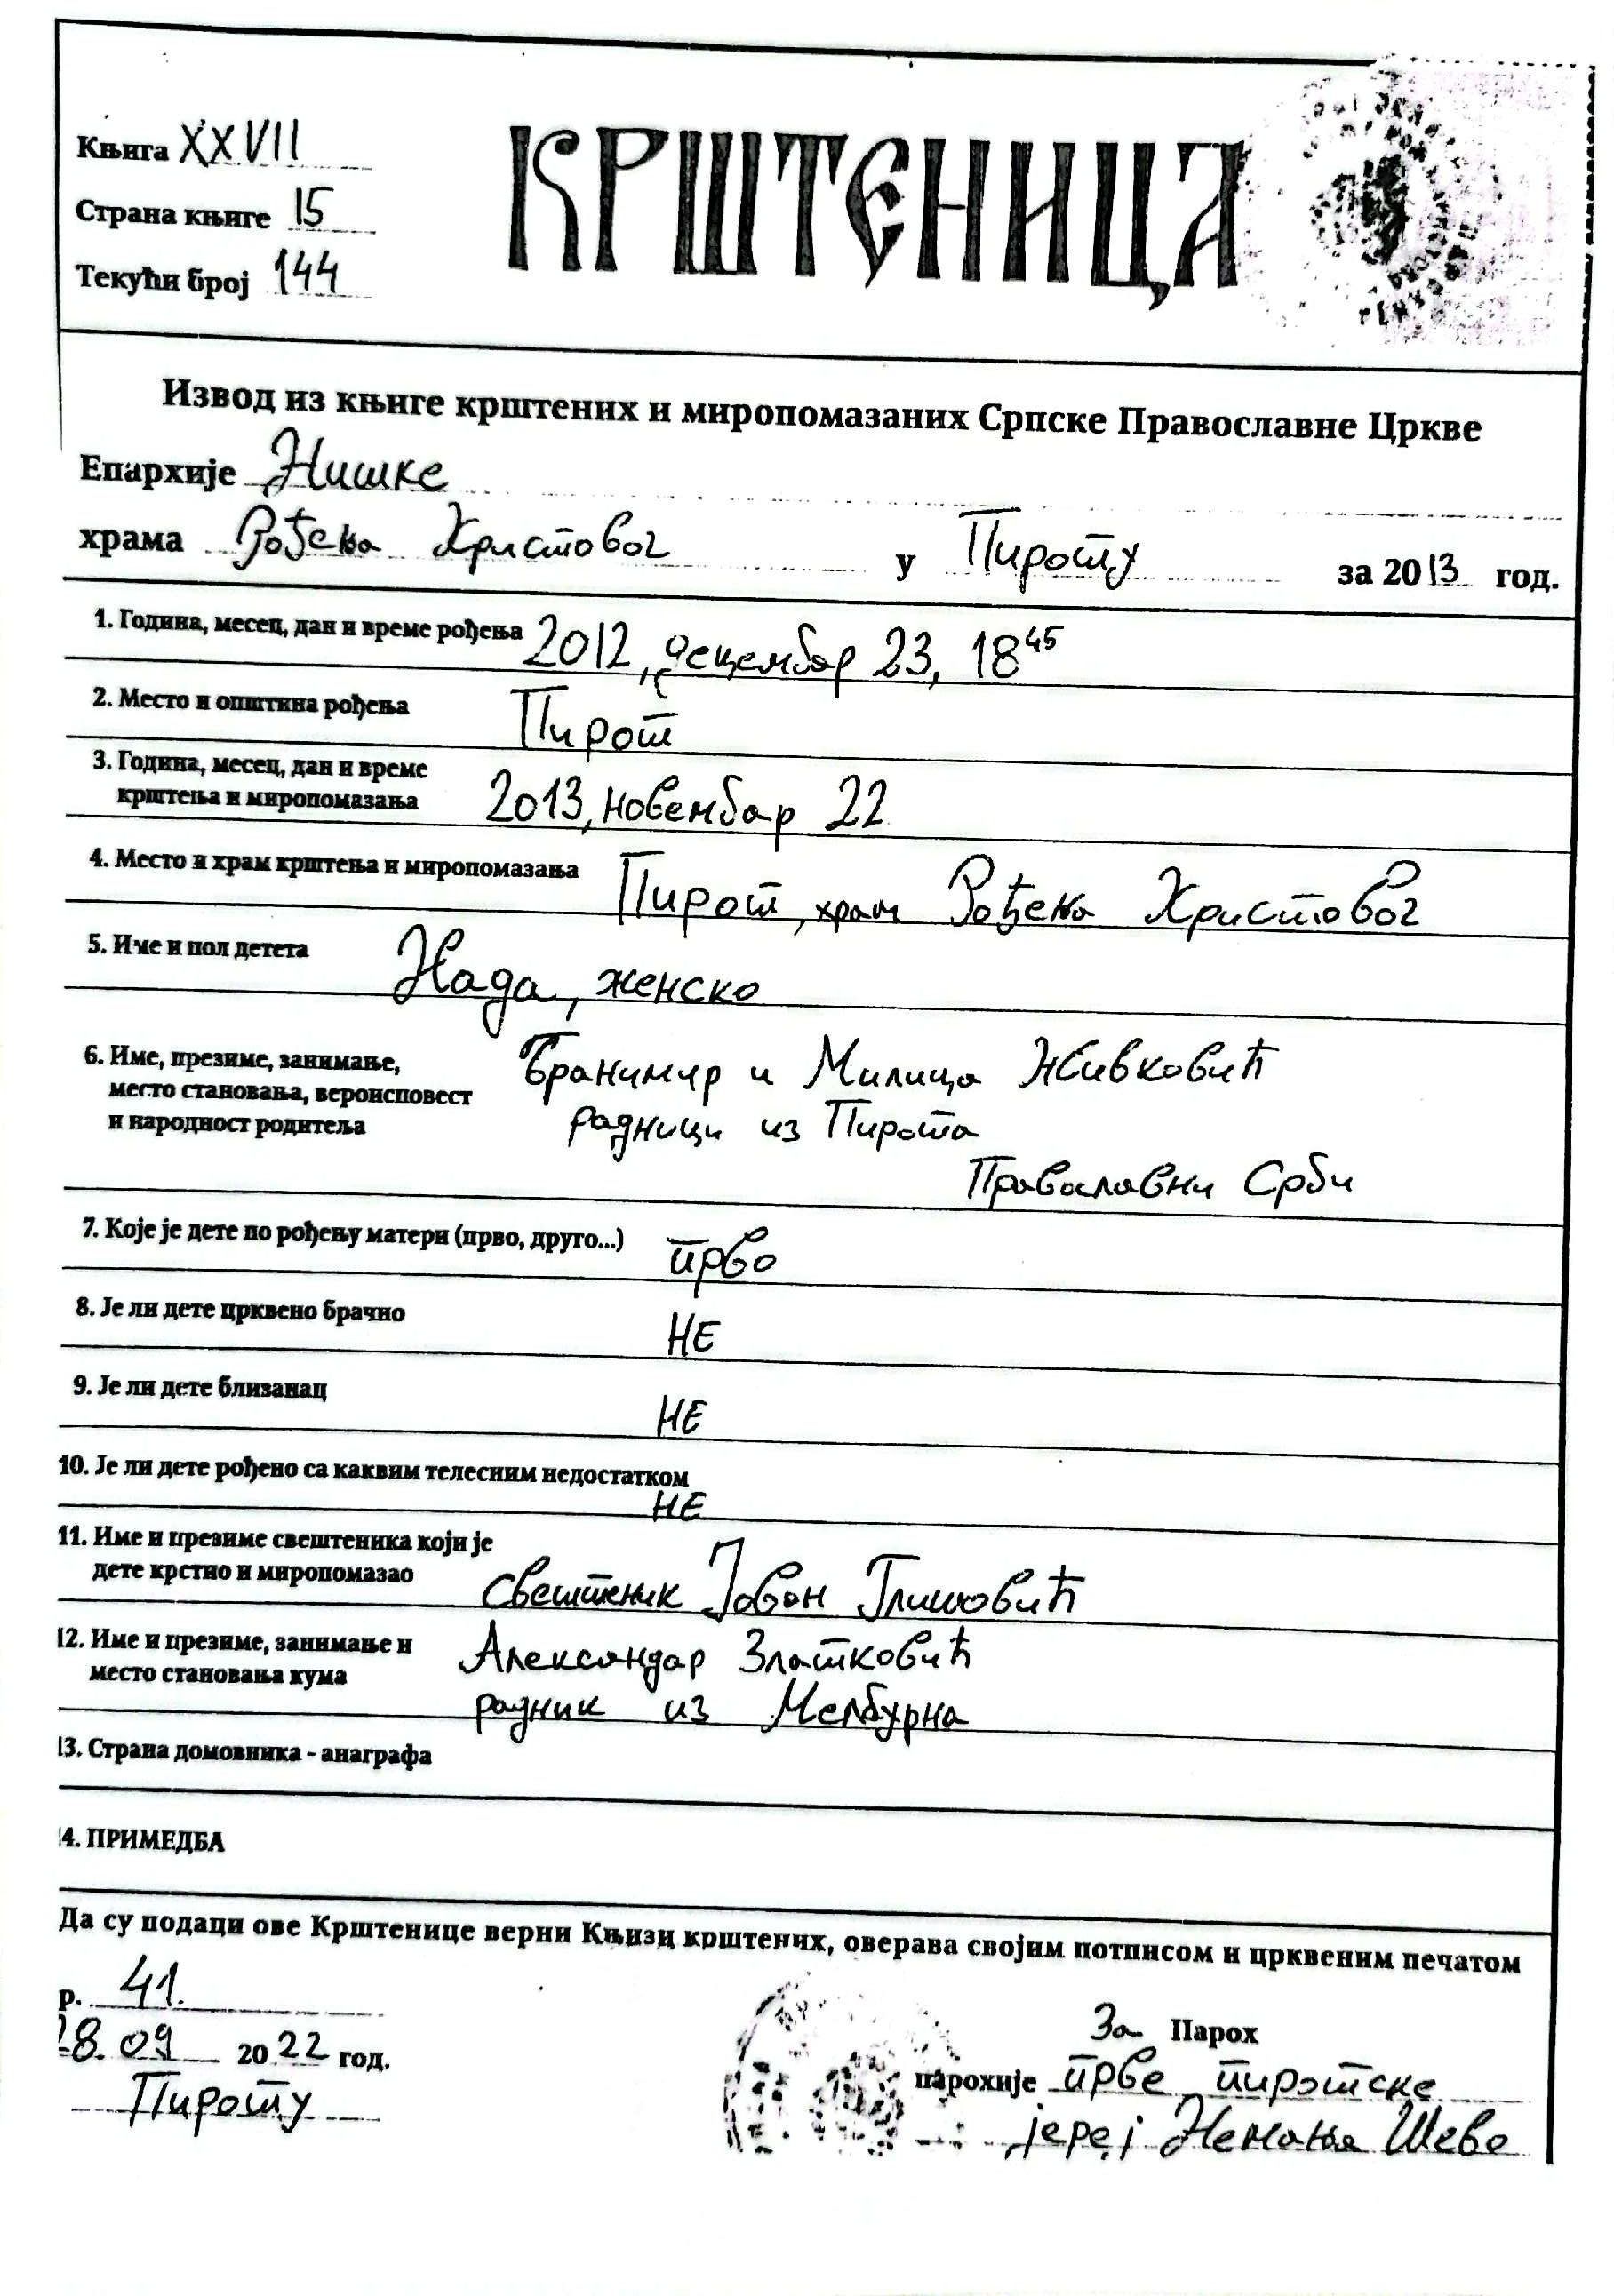 Књига XXVII
Страна књиге 15
Текући број 144
КРШТЕНИЦА
Извод из књиге крштених и миропомазаних Српске Православне Цркве
Епархије Нишке
храма Рођења Христовог у Пироту за 2013 год.
1. Година, месец, дан и време рођења 2012, децембар 23, 18 45
2. Место и општина рођења Пирот
3. Година, месец, дан и време
крштења и миропомазања 2013, новембар 22
4. Место и храм крштења и миропомазања Пирот, храм Рођења Христовог
5. Име и пол детета Нада, женско
6. Име, презиме, занимање, Бранимир и Милица Живковић
место становања, вероисповест радници из Пирота
и народност родитеља Православни Срби
7. Које је дете по рођењу матери (прво, друго...) прво
8. Је ли дете црквено брачно НЕ
9. Је ли дете близанац НЕ
10. Је ли дете рођено са каквим телесним недостатком НЕ
11. Име и презиме свештеника који је
дете крстио и миропомазао свештеник Јован Глишовић
12. Име и презиме, занимање и Александар Златковић
место становања кума радник из Мелбурна
13. Страна домовника - анаграфа
4. ПРИМЕДБА
Да су подаци ове Крштенице верни Књизи крштених, оверава својим потписом и црквеним печатом
р. 41.
28. 09 2022 год.
Пироту
За Парох
парохије прве пиротске
јереј Немања Шево